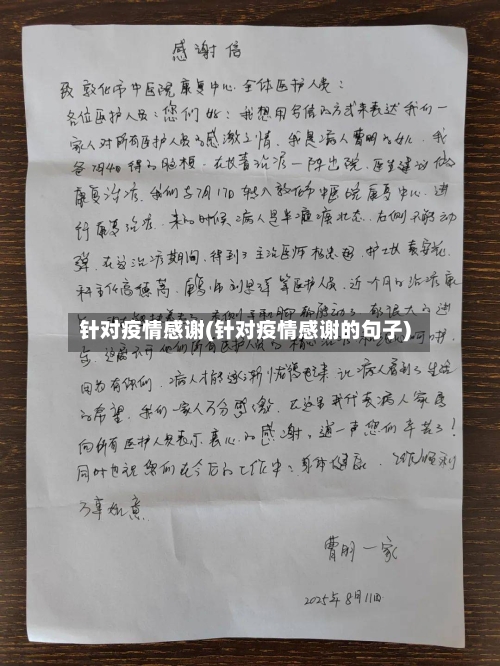 感谢信
致敦化市中医院康复中心全体医护人员：
各位医护人员：您们好：我想用写信的方式来表达我们一
家人对所有医护人员的感激之情，我是病人曹明的女儿，我
爸7月4日得的脑梗，在 治疗一阵出院，医生建议做
康复治疗，我们与7月17日转入敦化市中医院康复中心，进
行康复治疗，来的时候病人是半瘫痪状态，右侧不能动
弹，在这治疗期间，得到了主治医师 护士
科主任高 康复师 等医护人员，近一个月的治疗康
针对疫情感谢(针对疫情感谢的句子)
因为有你们，病人才能逐渐 让病人看到了生活
的希望，我们一家人万分感激，在这里我代表病人家属
向所有医护人员表示衷心的感谢，道一声您们辛苦了！
同时也祝您们在今后的工作中：身体健康，工作顺利
万事如意
曹明一家
2025年8月11日